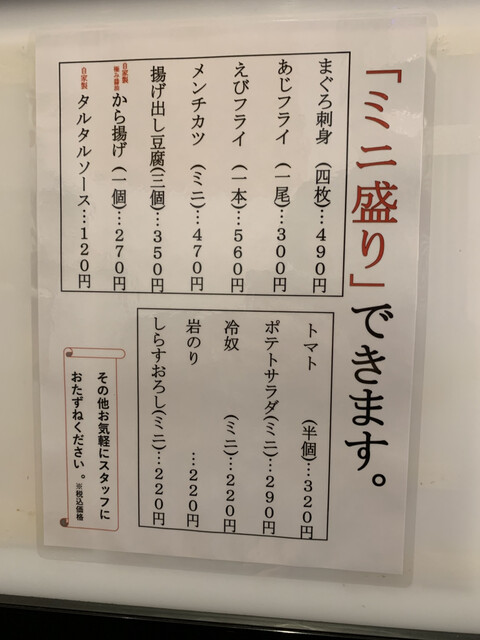 「ミニ盛り」できます。
まぐろ刺身 (四枚)…490円
あじフライ (一尾)…300円
えびフライ (一本)…560円
メンチカツ (ミニ)…470円
揚げ出し豆腐(三個)…350円
自家製
極み醤油
から揚げ (一個)…270円
自家製
タルタルソース…120円
トマト (半個)…320円
ポテトサラダ(ミニ)…290円
冷奴 (ミニ)…220円
岩のり …220円
しらすおろし(ミニ)…220円
その他お気軽にスタッフに
おたずねください。※税込価格